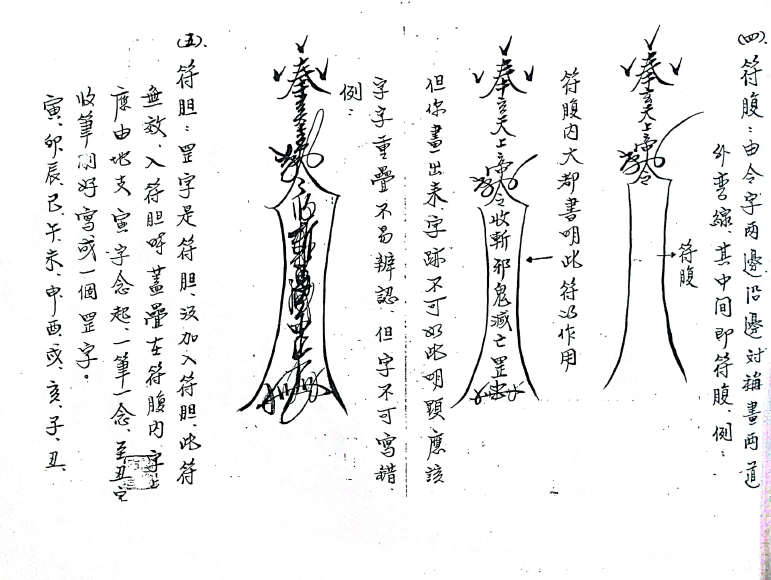 ㈣、符腹：由令字两邊沿邊对稱畫两道
外弯線、其中間即符腹、例：
奉玄天上帝勅令
符腹
符腹内大都書明此符的作用
奉玄天上帝勅令收斬邪鬼滅亡罡
但你畫出来字跡不可如此明顕應該
字字重疊不易辨認、但字不可寫錯、
例：
奉
㈤、符胆：罡字是符胆、没加入符胆、此符
無效、入符胆時蓋疊在符腹内字上
應由地支寅字念起、一筆一念、至丑字
收筆刚好寫成一個罡字。
寅、卯、辰、巳、午、未、申、酉、戌、亥、子、丑、